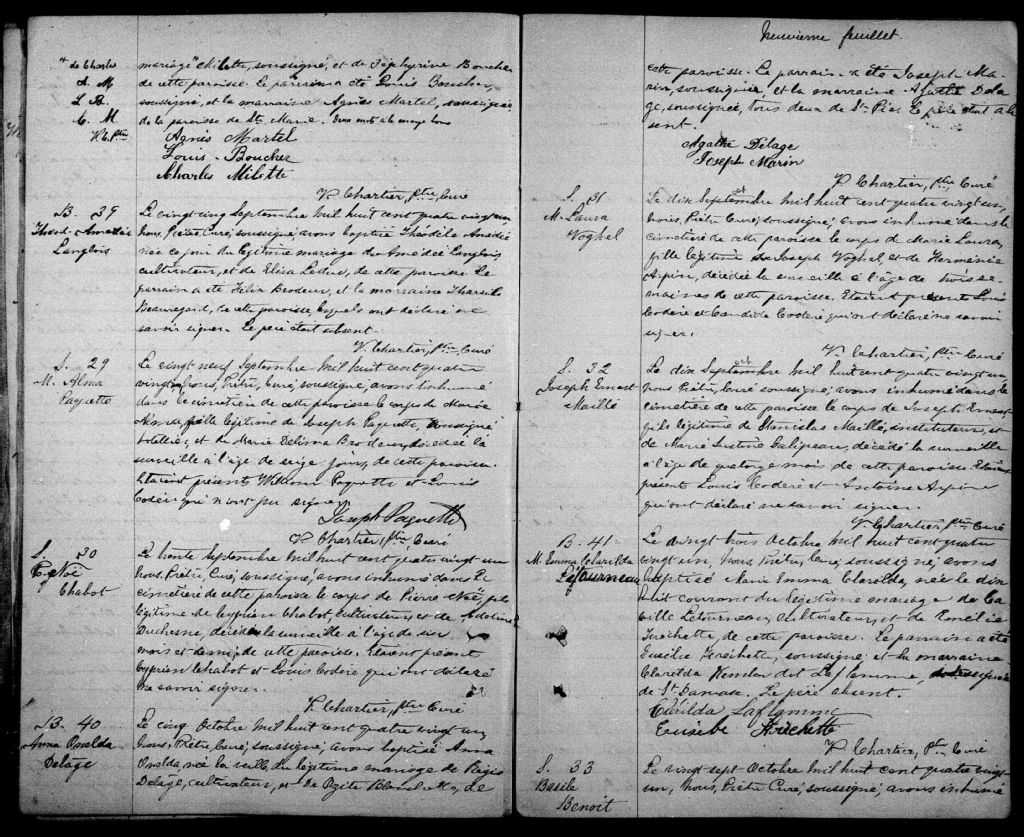 de Charles
A. M
L. B.
C. M
V. C. Ptre
mariage Milette, soussigné, et de Zéphyrine Boucher
de cette paroisse. Le parrain a été Louis Boucher,
soussigné, et la marraine Agnès Martel, soussignée
de la paroisse de Ste Marie.
Agnès Martel
Louis Boucher
Charles Milette
V. Chartier, Ptre Curé
B. 39
Langlois
Le vingt cinq Septembre mil huit cent quatre vingt un
nous, Prêtre, Curé, soussigné, avons baptisé Amédée
née ce jour du légitime mariage de Amédée Langlois
cultivateur, et de Eliza Leduc, de cette paroisse. Le
parrain a été Félix Brodeur, et la marraine Tharsile
Beauregard, de cette paroisse, lesquels ont déclaré ne
savoir signer. Le père était absent.
V. Chartier, Ptre Curé
S. 29
M. Alma
Paquette
Le vingt neuf Septembre mil huit cent quatre
vingt un, nous, Prêtre, Curé, soussigné, avons inhumé
dans le cimetière de cette paroisse le corps de Marie
Alma, fille légitime de Joseph Paquette, soussigné
hôtellier, et de Marie Zélima Brodeur, décédée la
surveille à l'âge de seize jours, de cette paroisse.
Etaient présents William Paquette et Louis
Codère qui n'ont pu signer.
Joseph Paquette
V. Chartier, Ptre Curé
S. 30
P. Noë
Chabot
Le trente Septembre mil huit cent quatre vingt un
nous, Prêtre, Curé, soussigné, avons inhumé dans le
cimetière de cette paroisse le corps de Pierre Noë, fils
légitime de Cyprien Chabot, cultivateur, et de Adeline
Duchesne, décédé la surveille à l'âge de six
mois et demi, de cette paroisse. Etaient présent
Cyprien Chabot et Louis Codère qui ont déclaré
ne savoir signer.
V. Chartier, Ptre Curé
B. 40
Anna Onelda
Delâge
Le cinq Octobre mil huit cent quatre vingt un
nous, Prêtre, Curé, soussigné, avons baptisé Anna
Onelda, née la veille, du légitime mariage de Régis
Delâge, cultivateur, et de de
Neuvième feuillet.
cette paroisse. Le parrain a été Joseph Ma-
rin, soussigné, et la marraine Agathe Dela-
ge, soussignée, tous deux de St Pie. Le père était ab
sent.
Agathe Délage
Joseph Marin
V. Chartier, Ptre Curé
S. 31
M. Laura
Voghel
Le dix Octobre mil huit cent quatre vingt un,
nous, Prêtre, Curé, soussigné, avons inhumé dans le
cimetière de cette paroisse le corps de Marie Laura,
fille légitime de Joseph Voghel et de Herménie
Arpin, décédée la surveille à l'âge de trois se-
maines de cette paroisse. Etaient présents Louis
Codère et Candide Codère qui ont déclaré ne savoir
signer.
V. Chartier, Ptre Curé
S. 32
Joseph Ernest
Maillé
Le dix Octobre mil huit cent quatre vingt un
nous, Prêtre, Curé, soussigné, avons inhumé dans le
cimetière de cette paroisse le corps de Joseph Ernest
fils légitime de Stanislas Maillé, instituteur, et
de Marie Justine Galipeau, décédé la surveille
à l'âge de quatorze mois de cette paroisse. Etaient
présent Louis Codère et Antoine Arpin
qui ont déclaré ne savoir signer.
V. Chartier, Ptre Curé
B. 41
M. Emma Clarilda
Létourneau
Le vingt trois Octobre mil huit cent quatre
vingt un, nous, Prêtre, Curé, soussigné, avons
baptisé Marie Emma Clarilda, née le dix
huit courant du légitime mariage de Ca-
mille Létourneau, cultivateur, et de Emélie
Fréchette, de cette paroisse. Le parrain a été
Eusèbe Fréchette, soussigné et la marraine
Clarilda dit Laflamme, soussignée
de St Damase. Le père absent.
Clérilda Laflamme
Eusèbe Frechette
V. Chartier, Ptre Curé
S. 33
Basile
Benoit
Le vingt sept Octobre mil huit cent quatre vingt-
un, nous, Prêtre, Curé, soussigné, avons inhumé